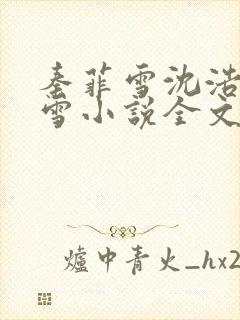 秦菲雪沈浩
雪小説全文
爐中青火_hx2